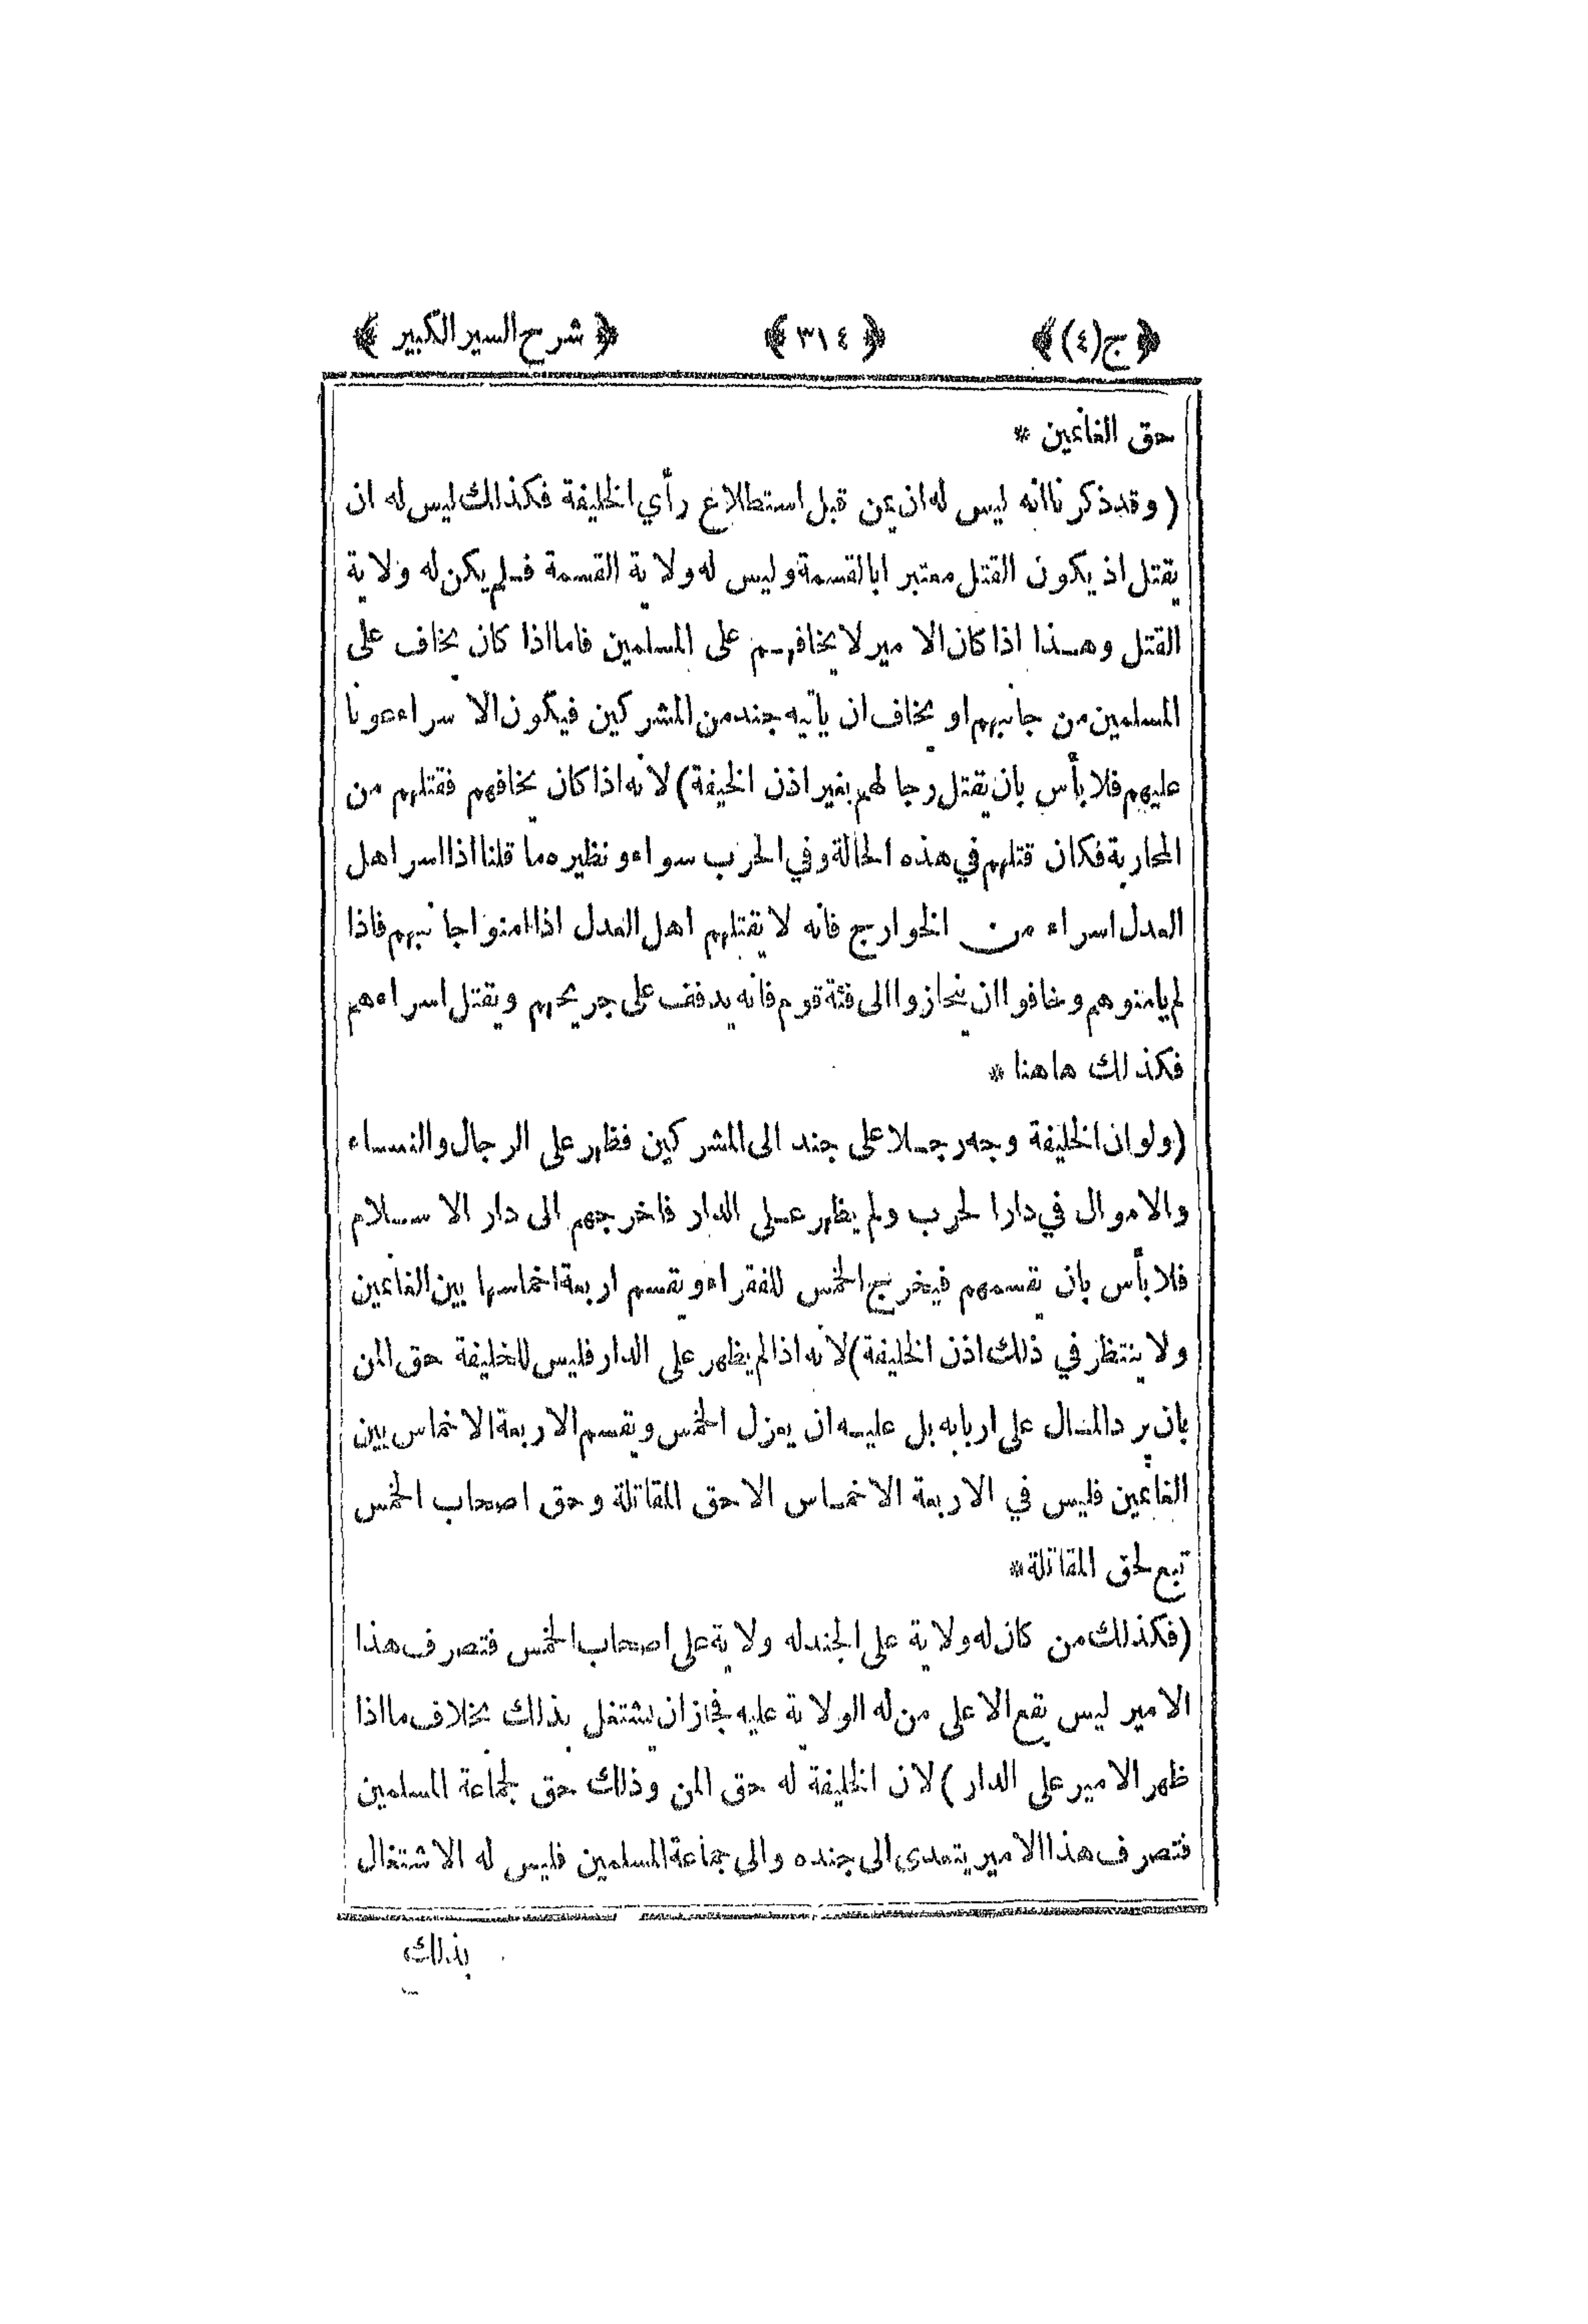 ﴿ ج(٤) ﴾ ﴿ ٣١٤ ﴾ ﴿ شرح السير الكبير ﴾
حق الغانمين *
( وقد ذكرنا انه ليس له ان يمن قبل استطلاع رأي الخليفة فكذلك ليس له ان
يقتل اذ يكون القتل معتبرا بالقسمة وليس له ولاية القسمة فلم يكن له ولاية
القتل وهذا اذا كان الامير لا يخافهم على المسلمين فاما اذا كان يخاف على
المسلمين من جانبهم او يخاف ان ياتيه جند من المشركين فيكون الاسراء عونا
عليهم فلا بأس بان يقتل رجالهم بغير اذن الخيفة ) لانه اذا كان يخافهم فقتلهم من
المحاربة فكان قتلهم في هذه الحالة وفي الحرب سواء ونظيره ما قلنا اذا اسر اهل
العدل اسراء من الخوارج فانه لا يقتلهم اهل العدل اذا امنوا جانبهم فاذا
لم يامنوهم وخافوا ان ينحازوا الى فئة قوم فانه يدفف على جريحهم ويقتل اسراءهم
فكذلك هاهنا *
( ولو ان الخليفة وجه رجلا على جند الى المشركين فظهر على الرجال والنساء
والاموال في دار الحرب ولم يظهر على الدار فاخرجهم الى دار الاسلام
فلا بأس بان يقسمهم فيخرج الخمس للفقراء ويقسم اربعة اخماسها بين الغانمين
ولا ينتظر في ذلك اذن الخليفة ) لانه اذا لم يظهر على الدار فليس للخليفة حق المن
بان يرد المال على اربابه بل عليه ان يعزل الخمس ويقسم الاربعة الاخماس بين
الغانمين فليس في الاربعة الاخماس الا حق المقاتلة وحق اصحاب الخمس
تبع لحق المقاتلة *
( فكذلك من كان له ولاية على الجند له ولاية على اصحاب الخمس فتصرف هذا
الامير ليس يقع الا على من له الولاية عليه فجاز ان يشتغل بذلك بخلاف ما اذا
ظهر الامير على الدار ) لان الخليفة له حق المن وذلك حق لجماعة المسلمين
فتصرف هذا الامير يتعدى الى جنده والى جماعة المسلمين فليس له الاشتغال
بذلك